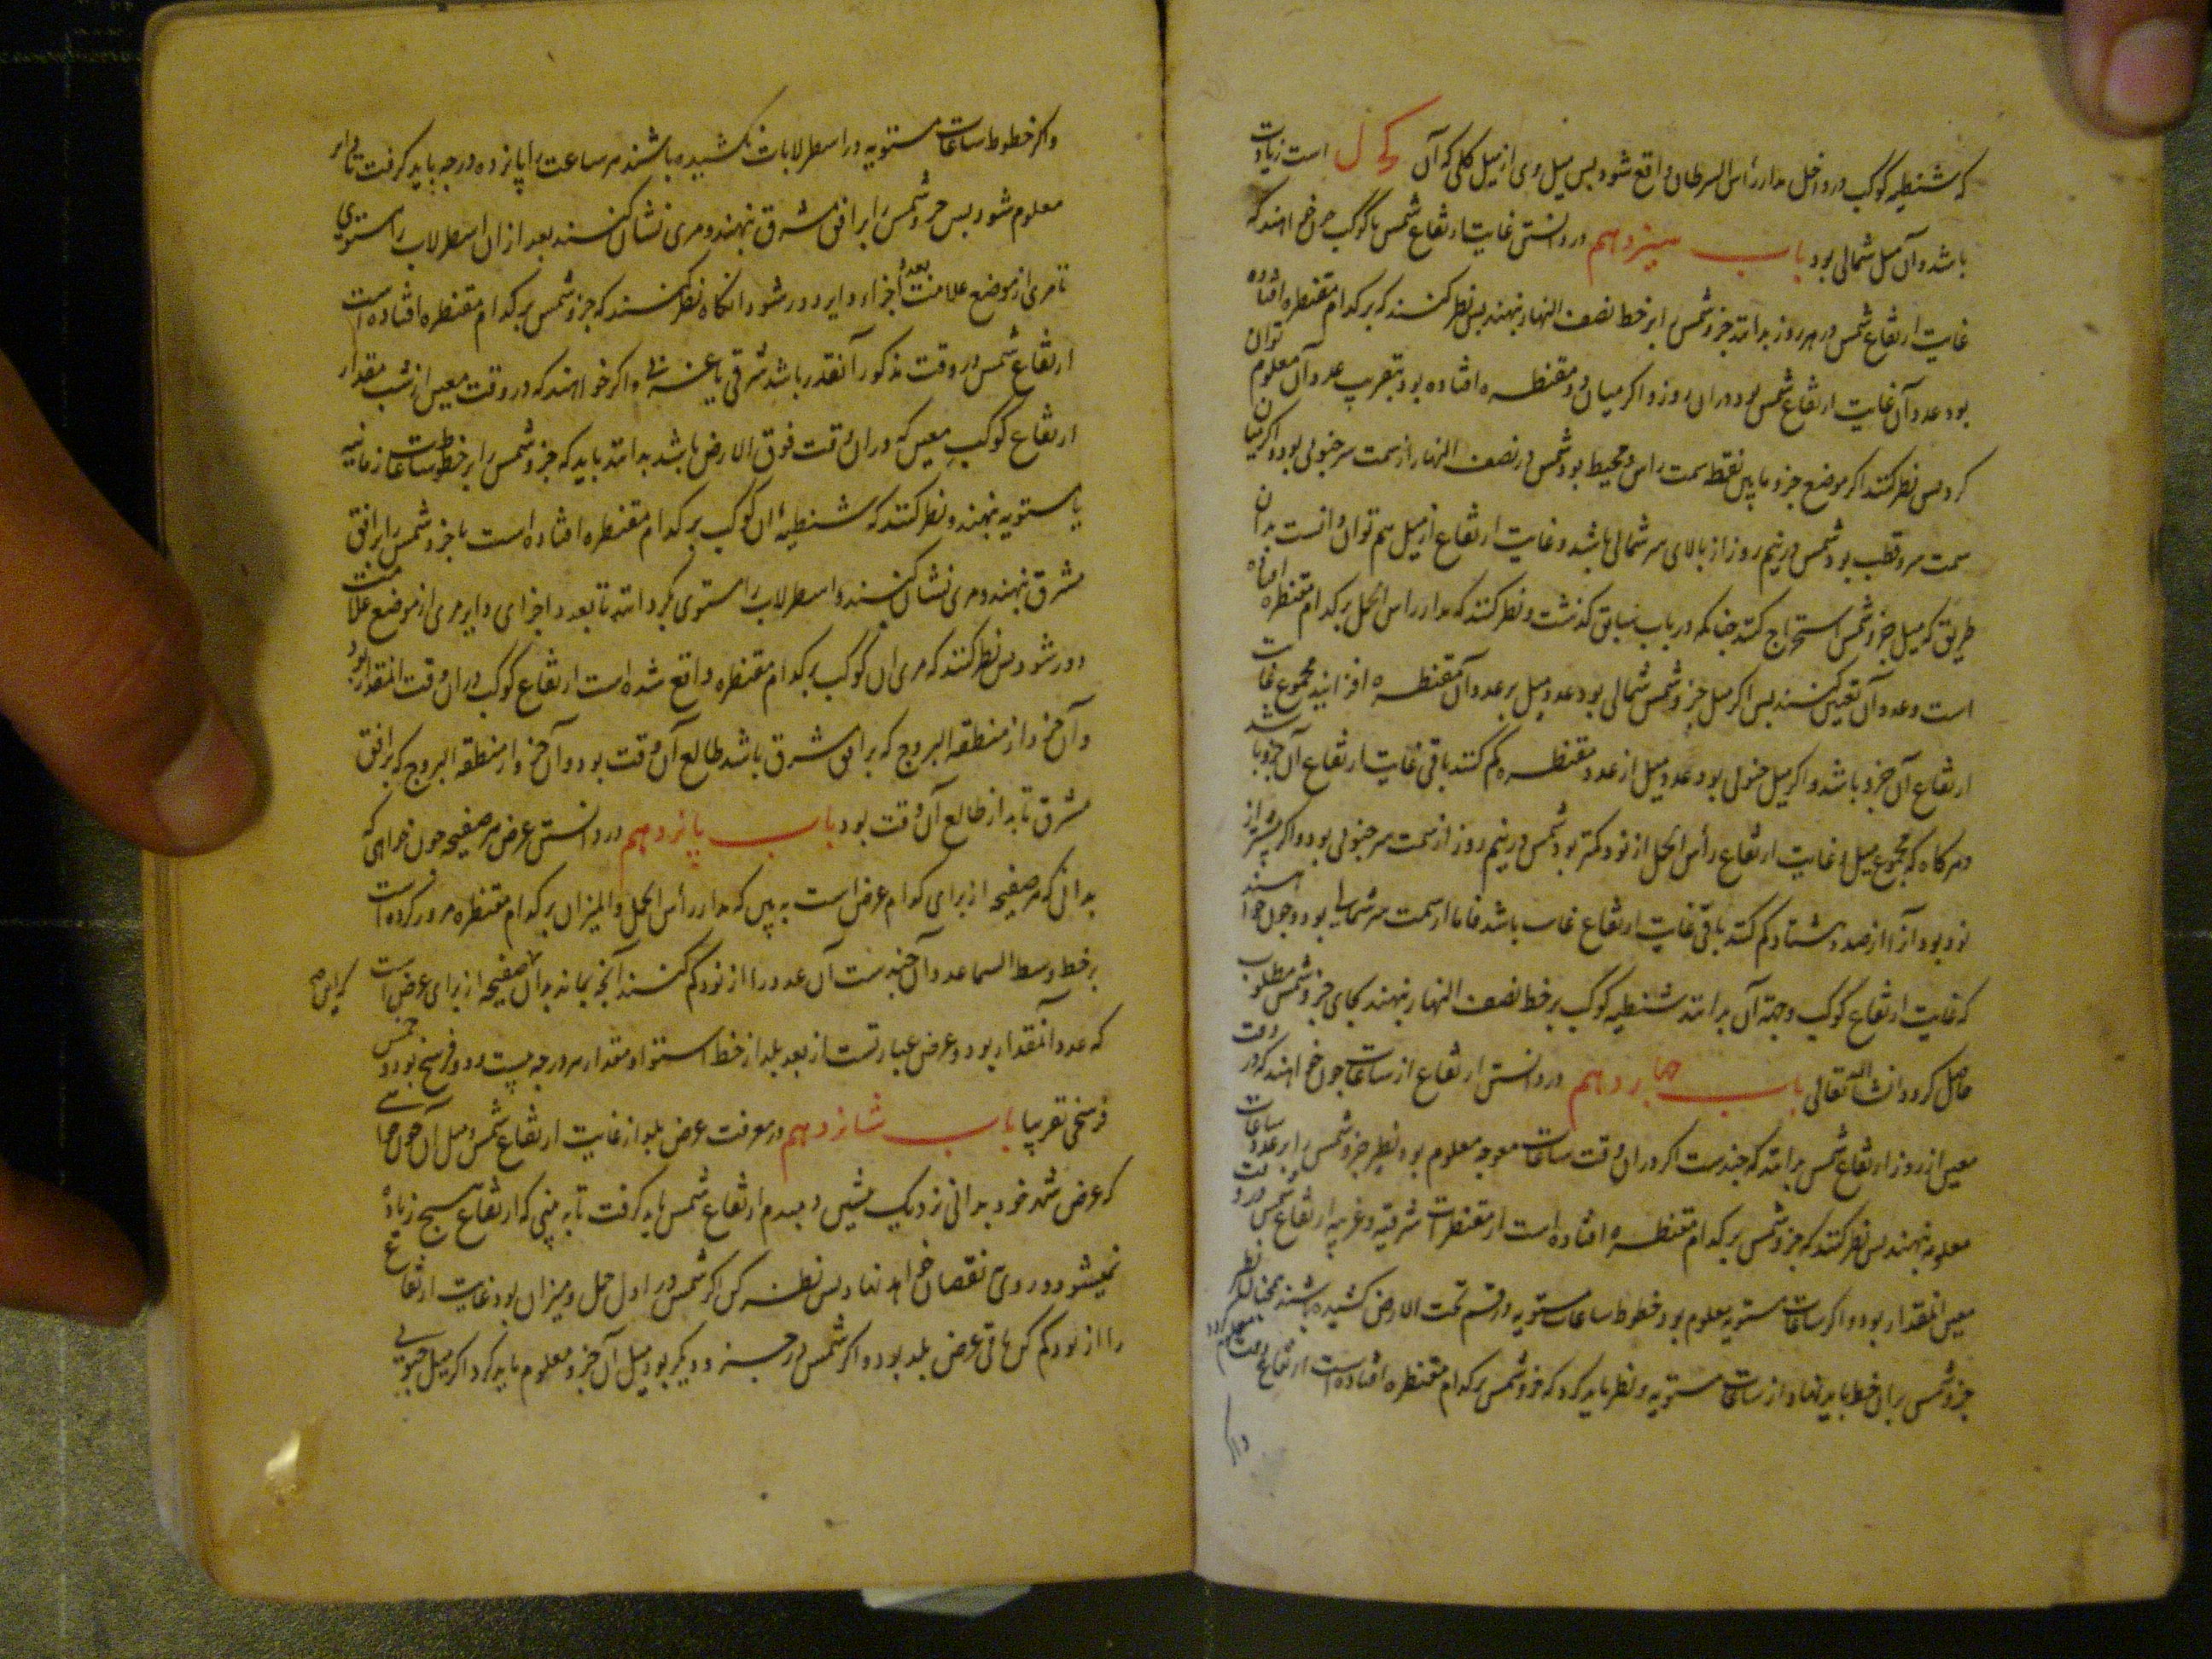 که شنطیه کوکب در داخل مدار رأس السرطان واقع شود بس میل وی از میل کلی که آن کج ل است زیادت
باشد و آن میل شمالی بود باب سیزدهم در دانستن غایت ارتفاع شمس یا کوکب چون خواهند که
غایت ارتفاع شمس در هر روز بدانند جزو شمس را بر خط نصف النهار نهند بس نظر کنند که بر کدام مقنطره افتاده
بود عدد آن غایت ارتفاع شمس بود در ان روز و اکر میان دو مقنطره افتاده بود بتقریب عدد آن معلوم توان
کرد بس نظر کنند اکر موضع جزو ما بین نقطه سمت راس و محیط بود شمس در نصف النهار از سمت سر جنوبی بود و اکر میان
سمت سر و قطب بود شمس در نیم روز از بالای سر شمالی باشد و غایت ارتفاع از میل هم توان دانست بدان
طریق که میل جزو شمس استخراج کنند چنانکه در باب سابق کذشت و نظر کنند که مدار راس الحمل بر کدام مقنطره افتاده
است و عدد آن تعیین کنند بس اکر میل جزو شمس شمالی بود عدد میل بر عدد آن مقنطره افزایند مجموع غایت
ارتفاع آن جزو باشد و اکر میل جنوبی بود عدد میل از عدد مقنطره کم کنند باقی غایت ارتفاع آن جزو باشد
و هر کاه که مجموع میل و غایت ارتفاع رأس الحمل از نود کمتر بود شمس در نیم روز از سمت سر جنوبی بود و اکر بیشتر از
نود بود آنرا از صد و هشتاد کم کنند باقی غایت ارتفاع باشد فاما از سمت سر شمالی بود و چون خواهند
که غایت ارتفاع کوکب و جهة آن بدانند شنطیه کوکب بر خط نصف النهار نهند بجای جزو شمس مطلوب
حاصل کردد انشا الله تعالی باب چهاردهم در دانستن ارتفاع از ساعات چون خواهند که در وقت
معین از روز ارتفاع شمس بدانند که چندست اکر در ان وقت ساعات معوجه معلوم بود نظیر جزو شمس را بر عدد ساعات
معلومه نهند بس نظر کنند که جزو شمس بر کدام مقنطره افتاده است از مقنطرات شرقیه و غربیه ارتفاع شمس در وقت
معین انمقدار بود و اکر ساعات مستویه معلوم بود و خطوط ساعات مستویه در قسم تحت الارض کشیده باشند همچنان نظیر
جزو شمس بران خط باید نهاد از ساعات مستویه و نظر باید کرد که جزو شمس بر کدام مقنطره افتاده است ارتفاع وقت معلوم کردد
واکر
واکر خطوط ساعات مستویه در اسطرلابات نکشیده باشند هر ساعت را پانزده درجه باید کرفت تا دایر
معلوم شود بس جزو شمس را بر افق مشرق نهند و مری نشان کنند بعد از ان اسطرلاب را مستوی
تا مری از موضع علامت بعدد اجزاء دایر دور شود انکاه نظر کنند که جزو شمس بر کدام مقنطره افتاده است
ارتفاع شمس در وقت مذکور آنقدر باشد شرقی یا غربی و اکر خواهند که در وقت معین از شب مقدار
ارتفاع کوکب معین که در ان وقت فوق الارض باشد بدانند باید که جزو شمس را بر خط ساعات زمانیه
یا مستویه نهند و نظر کنند که شنطیهٔ ان کوکب بر کدام مقنطره افتاده است یا جزو شمس را بر افق
مشرق نهند و مری نشان کنند و اسطرلاب را مستوی بکردانند تا بعدد اجزای دایر مری از موضع علامت
دور شود بس نظر کنند که مری ان کوکب بر کدام مقنطره واقع شده است ارتفاع کوکب در ان وقت انمقدار بود
و آن جزو از منطقه البروج که بر افق مشرق باشد طالع آن وقت بود و آن جزو از منطقه البروج که بر افق
مشرق تابد از طالع آن وقت بود باب پانزدهم در دانستن عرض هر صفیحه چون خواهی که
بدانی که هر صفیحه از برای کدام عرض است به بین که مدار رأس الحمل والمیزان بر کدام مقنطره مرور کرده است
بر خط وسط السما عدد آن چندست آن عدد را از نود کم کنند آنچه بماند بدان صفیحه از برای عرض است
که عدد آنمقدار بود و عرض عبارتست از بعد بلد از خط استوا و مقدار هر درجه بیست و دو فرسخ بود و خمس
فرسخی تقریبا باب شانزدهم در معرفت عرض بلد از غایت ارتفاع شمس و میل آن چون خواهی
که عرض شهر خود بدانی نزدیک پیشین دمبدم ارتفاع شمس باید کرفت تا به بینی که ارتفاع هیچ زیاده
نمیشود و روی در نقصان خواهد نهاد بس نظر کن اکر شمس در اول حمل و میزان بود غایت ارتفاع
را از نود کم کن باقی عرض بلد بود و اکر شمس در جزو دیکر بود میل آن جزو معلوم باید کرد اکر میل جنوبی